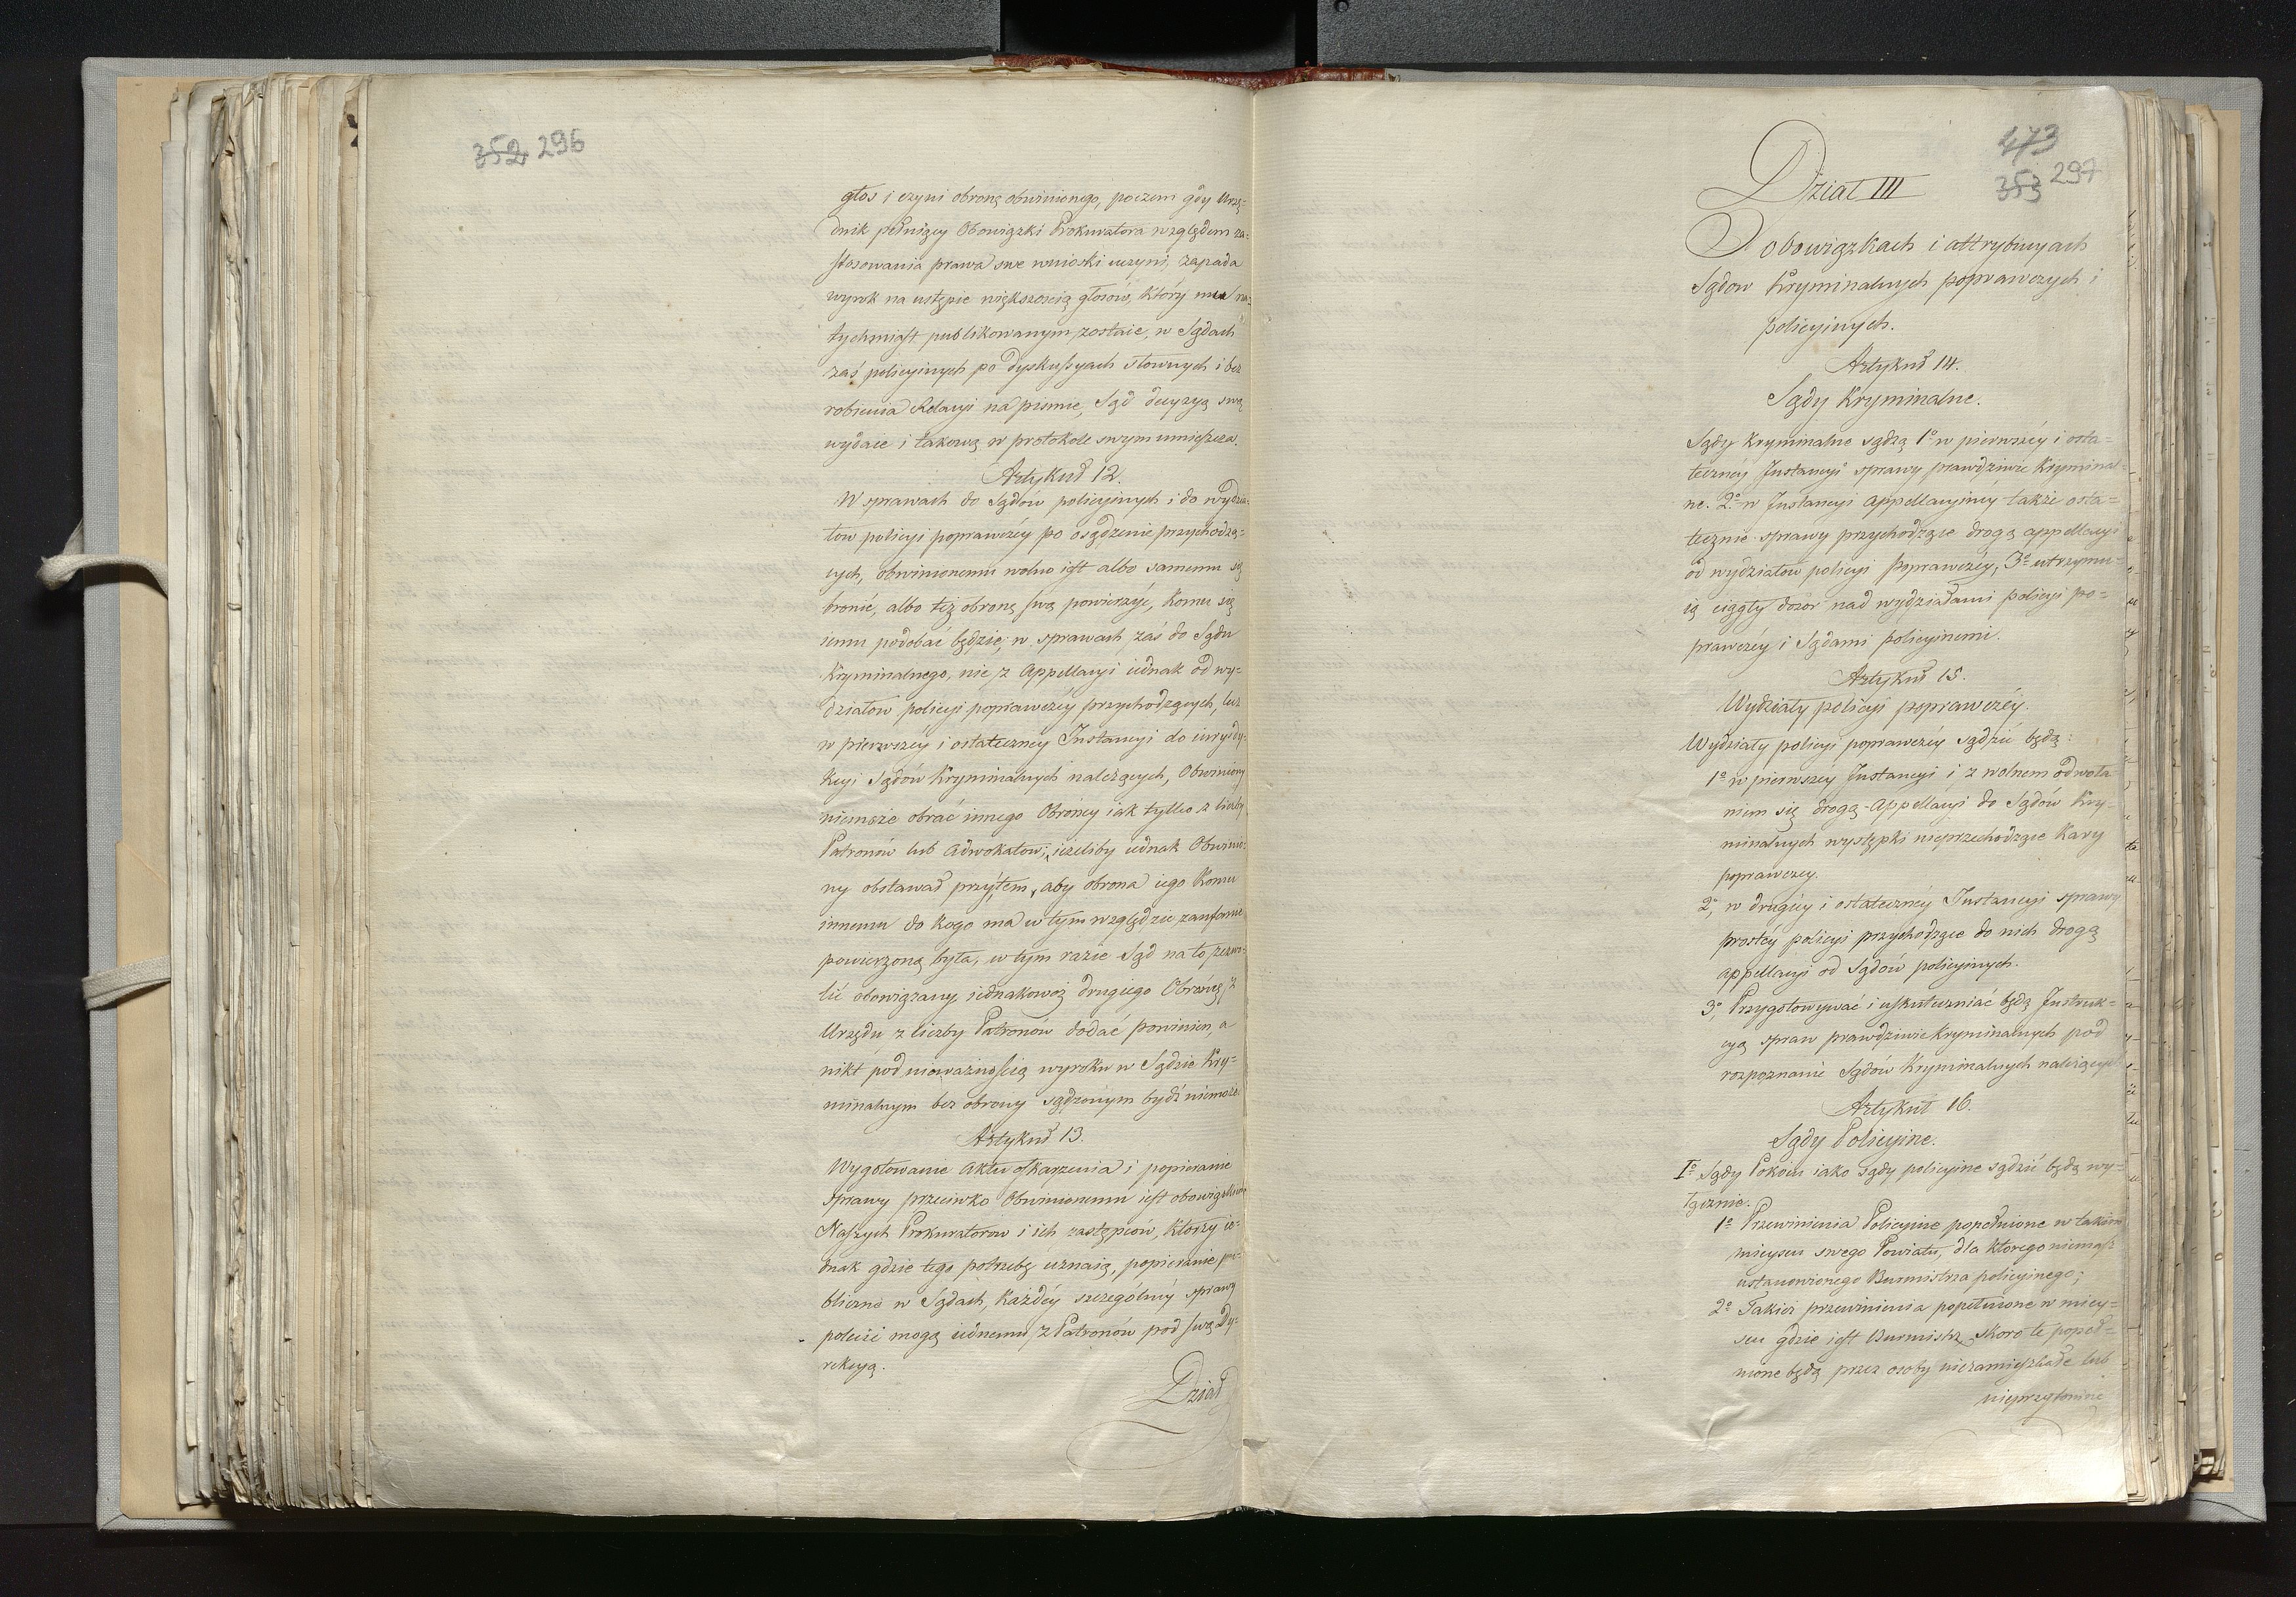 352 296
głos i czyni obronę obwinionego, poczem gdy Urzę=
dnik pełniący Obowiązki Prokuratora względem za=
stosowania prawa swe wnioski uczyni, zapada
wyrok na ustępie większością głosów, który na=
tychmiast publikowanym zostaie, w Sądach
zaś policyinych po dyskussyach słownych i bez
robienia Relacyi na pismie, Sąd decyzyą swą
wydaie i takową w protokole swym umieszcza.
Artykuł 12.
W sprawach do Sądów policyinych i do wydzia=
łow policyi poprawczéy po osądzenie przychodzą=
cych, obwinionemu wolno iest albo samemu się
bronić, albo też obronę swą powierzyć, komu się
iemu podobać będzie; w sprawach zaś do Sądu
Kryminalnego, nie z Appellacyi iednak od wy=
działow policyi poprawczéy przychodzących, lecz
w pierwszéy i ostateczney Instancyi do iuryzdy=
kcyi Sądów Kryminalnych należących, Obwiniony
niemoże obrać innego Obrońcy iak tylko z liczby
Patronów lub Adwokatow; ieżeliby iednak Obwinio=
ny obstawał przytem, aby obrona iego komu
innemu do kogo ma w tym względzie zaufanie
powierzoną była, w tym razie Sąd na to zezwo=
lić obowiązany, iednakowoż drugiego Obrońcę z
Urzędu z liczby Patronów dodać powinien, a
nikt pod nieważnością wyroku w Sądzie Kry=
minalnym bez obrony sądzonym bydź niemoże.
Artykuł 13.
Wygotowanie aktu oskarzenia i popieranie
sprawy przeciwko Obwinionemu iest obowiązkiem
Naszych Prokuratorow i ich zastępców, którzy ie=
dnak gdzie tego potrzebę uznaią, popieranie pu=
bliczne w Sądach, każdéy szczególnéy sprawy
polecić mogą iednemu z Patronów pod swą Dy=
rekcyą.
Dział
473
353 297
Dział III
O obowiązkach i attrybucyach
Sądow Kryminalnych poprawczych i
policyinych.
Artykuł 14.
Sądy Kryminalne.
Sądy kryminalne sądzą 1o w pierwszéy i osta=
tecznéy Instancyi sprawy prawdziwie kryminal=
ne. 2o w Instancyi Appellacyinéy także osta=
tecznie sprawy przychodzące drogą appellacyi
od wydziałow policyi poprawczéy, 3o utrzymu=
ią ciągły dozór nad wydziałami policyi po=
prawczéy i Sądami policyinemi.
Artykuł 15.
Wydziały policyi poprawczéy.
Wydziały policyi poprawczéy sądzić będą:
1o w pierwszéy Instancyi i z wolnem odwoła
niem się drogą Appellacyi do Sądów Kry=
minalnych występki nieprzechodzące kary
poprawczey.
2o, w drugiéy i ostatecznéy Instancyi sprawy
prostéy policyi przychodzące do nich drogą
appellacyi od Sądów policyinych.
3o Przygotowywać i uskuteczniać będą Instruk=
cyą spraw prawdziwie kryminalnych pod
rozpoznanie Sądów Kryminalnych należących
Artykuł 16.
Sądy Policyine.
Io Sądy Pokoiu iako sądy policyine sądzić będą wy=
łącznie.
1o Przewinienia Policyine popełnione w takiém
mieyscu swego Powiatu, dla ktorego niemasz
ustanowionego Burmistrza policyinego;
2o Takież przewinienia popełnione w miey=
scu gdzie iest Burmistrz, skoro te popeł=
nione będą przez osoby niezamieszkałe lub
nieprzytomne